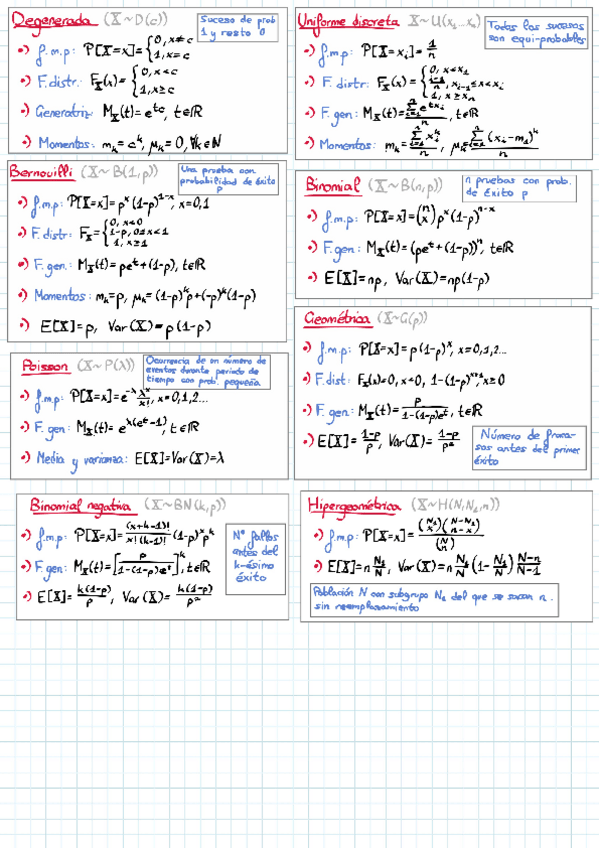 Degenerada (X~D(c))
Suceso de prob
1 y resto 0
•) f.m.p: P[X=x]={0, x≠c
1, x=c
•) F. distr: F_X(x)={0, x<c
1, x≥c
•) Generatriz: M_X(t)=e^{tc}, t∈ℝ
•) Momentos: m_k=c^k, μ_k=0, ∀k∈ℕ
Uniforme discreta X~U(x_1...x_n)
Todos los sucesos
son equi-probables
•) f.m.p: P[X=x_i]=1/n
•) F. distr: F_X(x)={0, x<x_1
(i-1)/n, x_{i-1}≤x<x_i
1, x≥x_n
•) F. gen: M_X(t)=∑_{i=1}^n e^{tx_i}/n, t∈ℝ
•) Momentos: m_k=∑_{i=1}^n x_i^k/n, μ_k=∑_{i=1}^n (x_i-m_1)^k/n
Bernouilli (X~B(1,p))
Una prueba con
probabilidad de éxito
p
•) f.m.p: P[X=x]=p^x(1-p)^{1-x}, x=0,1
•) F. distr: F_X={0, x<0
1-p, 0≤x<1
1, x≥1
•) F. gen: M_X(t)=pe^t+(1-p), t∈ℝ
•) Momentos: m_k=p, μ_k=(1-p)^k p+(-p)^k(1-p)
•) E[X]=p, Var(X)=p(1-p)
Binomial (X~B(n,p))
n pruebas con prob.
de éxito p
•) f.m.p: P[X=x]=(n x)p^x(1-p)^{n-x}
•) F. gen: M_X(t)=(pe^t+(1-p))^n, t∈ℝ
•) E[X]=np, Var(X)=np(1-p)
Geométrica (X~G(p))
•) f.m.p: P[X=x]=p(1-p)^x, x=0,1,2...
•) F. dist: F_X(x)=0, x<0, 1-(1-p)^{x+1} x≥0
•) F. gen: M_X(t)=p/(1-(1-p)e^t), t∈ℝ
•) E[X]=(1-p)/p, Var(X)=(1-p)/p^2
Número de fraca-
sos antes del primer
éxito
Poisson (X~P(λ))
Ocurrencia de un número de
eventos durante periodo de
tiempo con prob. pequeña
•) f.m.p: P[X=x]=e^{-λ} λ^x/x!, x=0,1,2...
•) F. gen: M_X(t)=e^{λ(e^t-1)}, t∈ℝ
•) Media y varianza: E[X]=Var(X)=λ
Binomial negativa (X~BN(k,p))
•) f.m.p: P[X=x]=(x+k-1)!/(x!(k-1)!) (1-p)^x p^k
•) F. gen: M_X(t)=[p/(1-(1-p)e^t)]^k, t∈ℝ
•) E[X]=k(1-p)/p, Var(X)=k(1-p)/p^2
Nº fallos
antes del
k-ésimo
éxito
Hipergeométrica (X~H(N,N_1,n))
•) f.m.p: P[X=x]=(N_1 x)(N-N_1 n-x)/(N n)
•) E[X]=n N_1/N, Var(X)=n N_1/N (1-N_1/N) (N-n)/(N-1)
Población N con subgrupo N_1 del que se sacan n.
sin reemplazamiento